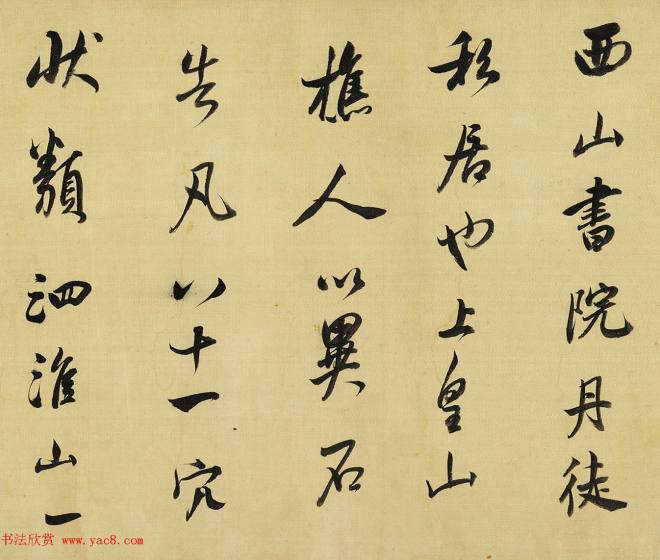 西山書院丹徒
私居也上皇山
樵人以異石
告凡八十一穴
狀類泗淮山一
书法欣赏 www.yac8.com